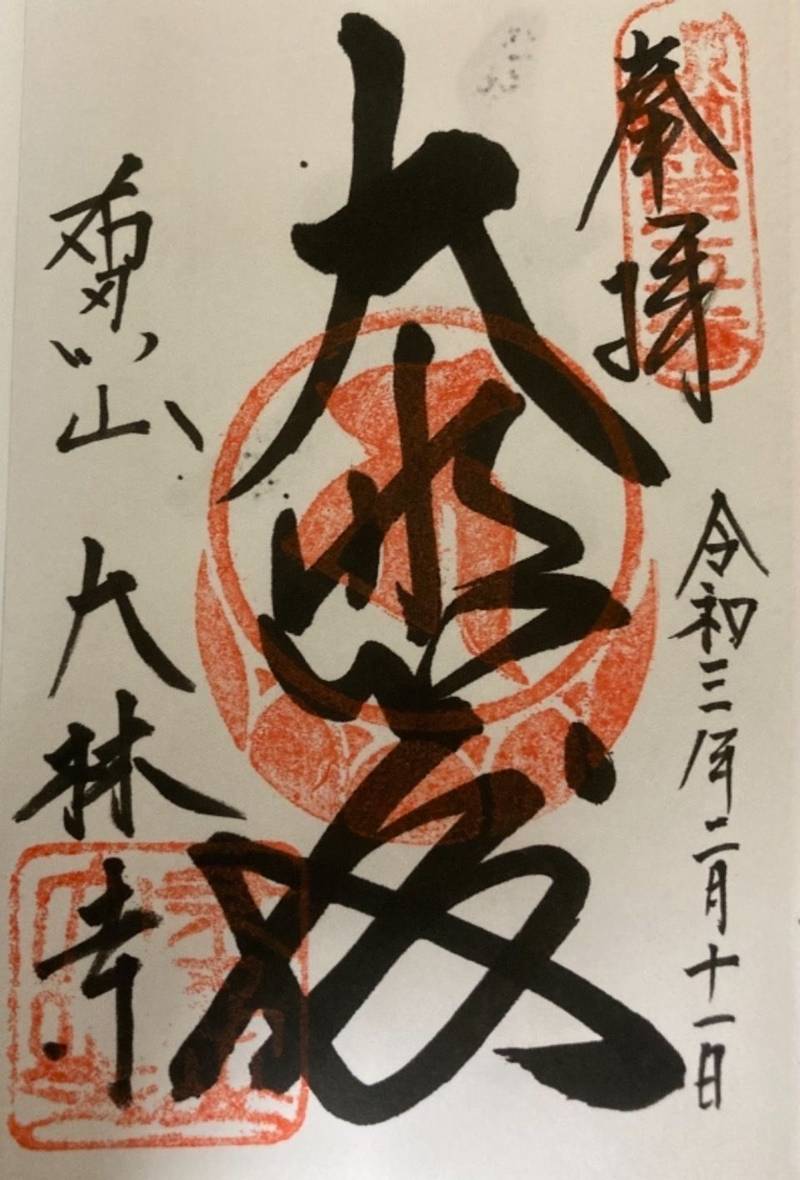 奉拝
令和三年二月十一日
大悲殿
山 大林寺